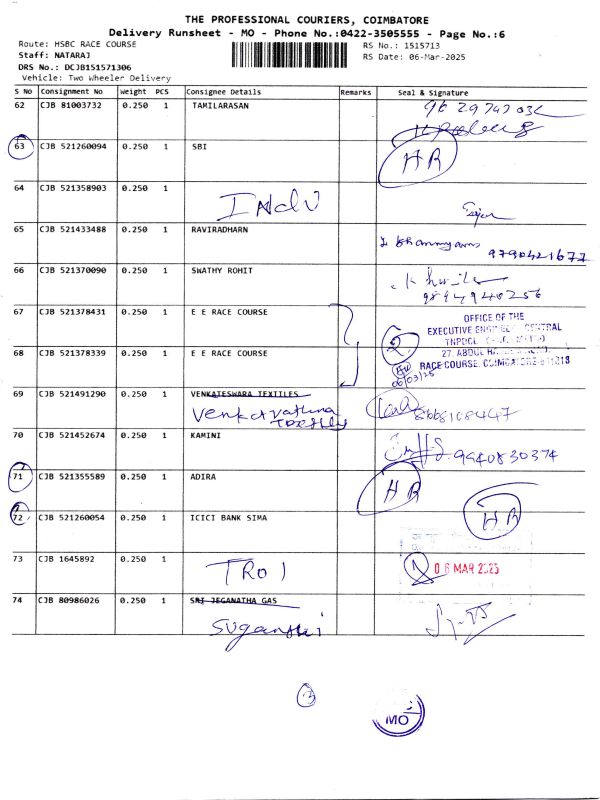 THE PROFESSIONAL COURIERS, COIMBATORE
Delivery Runsheet - MO - Phone No.:0422-3505555 - Page No.:6
Route: HSBC RACE COURSE
RS No.: 1515713
Staff: NATARAJ
RS Date: 06-Mar-2025
DRS No.: DCJB151571306
Vehicle: Two Wheeler Delivery
S No Consignment No Weight PCS Consignee Details Remarks Seal & Signature
62 CJB 81003732 0.250 1 TAMILARASAN
63 CJB 521260094 0.250 1 SBI HR
64 CJB 521358903 0.250 1
65 CJB 521433488 0.250 1 RAVIRADHARN
9790421677
66 CJB 521370090 0.250 1 SWATHY ROHIT
9894940256
67 CJB 521378431 0.250 1 E E RACE COURSE
OFFICE OF THE
EXECUTIVE CENTRAL
68 CJB 521378339 0.250 1 E E RACE COURSE 2
27, ABDUL
RACE COURSE, COIMBATORE
06/03/25
69 CJB 521491290 0.250 1 VENKATESWARA TEXTILES
8668108447
70 CJB 521452674 0.250 1 KAMINI
9940830374
71 CJB 521355589 0.250 1 ADIRA HR
72 CJB 521260054 0.250 1 ICICI BANK SIMA HR
73 CJB 1645892 0.250 1
06 MAR 2025
74 CJB 80986026 0.250 1 SRI JEGANATHA GAS
MO